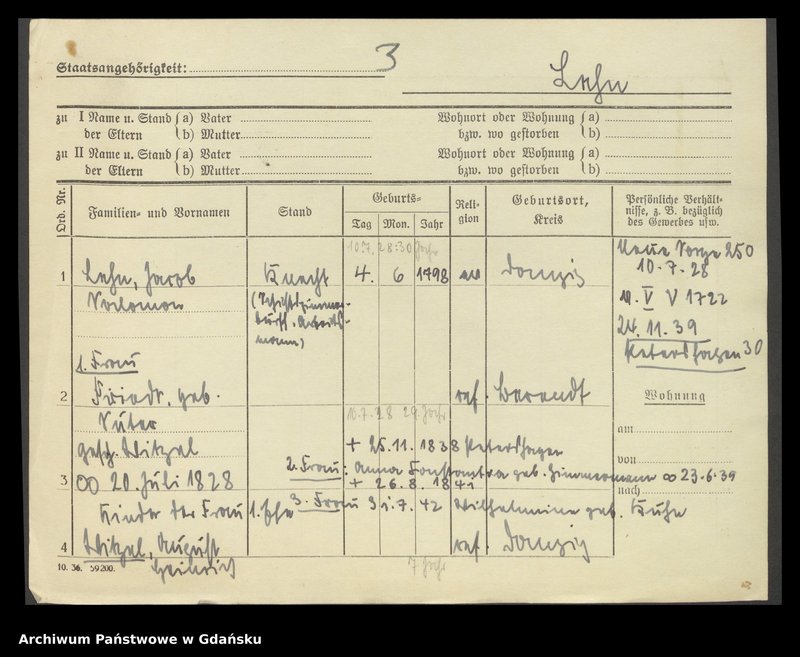 3
Staatsangehörigkeit:
Lehn
zu I Name u. Stand der Eltern a) Vater b) Mutter
Wohnort oder Wohnung bzw. wo gestorben a) b)
zu II Name u. Stand der Eltern a) Vater b) Mutter
Wohnort oder Wohnung bzw. wo gestorben a) b)
Ord. Nr. Familien- und Vornamen Stand Geburts- Tag Mon. Jahr Religion Geburtsort, Kreis Persönliche Verhältnisse, z. B. bezüglich des Gewerbes usw.
10.7. 28: 30 Jahr
250
1 Lehn, Jacob Knecht 4. 6 1798 ev Danzig 10.7.28
Salomon
V 1722
24.11.39
Petershagen 30
1. Frau
2 Friedr. geb. ref. Berendt Wohnung
10.7.28 29 Jahr
am
gesch. Witzel + 25.11.1838 Petershagen
von
2. Frau: Anna Constantia geb. Zimmermann ∞ 23.6.39
3 ∞ 20. Juli 1828 + 26.8.1841
nach
Kinder der Frau 1. Ehe 3. Frau 3.7.42 Wilhelmine geb. Kuhn
4 Witzel, August ref. Danzig
Heinrich
7 Jahr
10. 36. 59200.
Archiwum Państwowe w Gdańsku